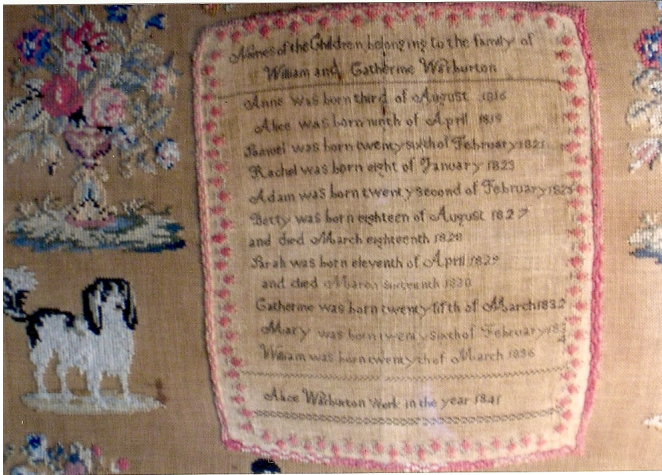 Names of the Children belonging to the family of
William and Catherine Warburton
Anne was born third of August 1816
Alice was born ninth of April 1819
Samuel was born twenty sixth of February 1821
Rachel was born eight of January 1823
Adam was born twenty second of February
Betty was born eighteen of August 1827
and died March eighteenth 1828
Sarah was born eleventh of April 1829
and died March sixteenth 1830
Catherine was born twenty fifth of March 1832
Mary was born twenty sixth of February
William was born twenty th of March 1836
Alice Warburton Work in the year 1841